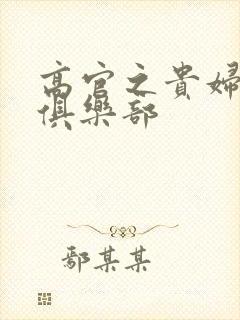 高官之貴婦
俱樂部
鄢某某